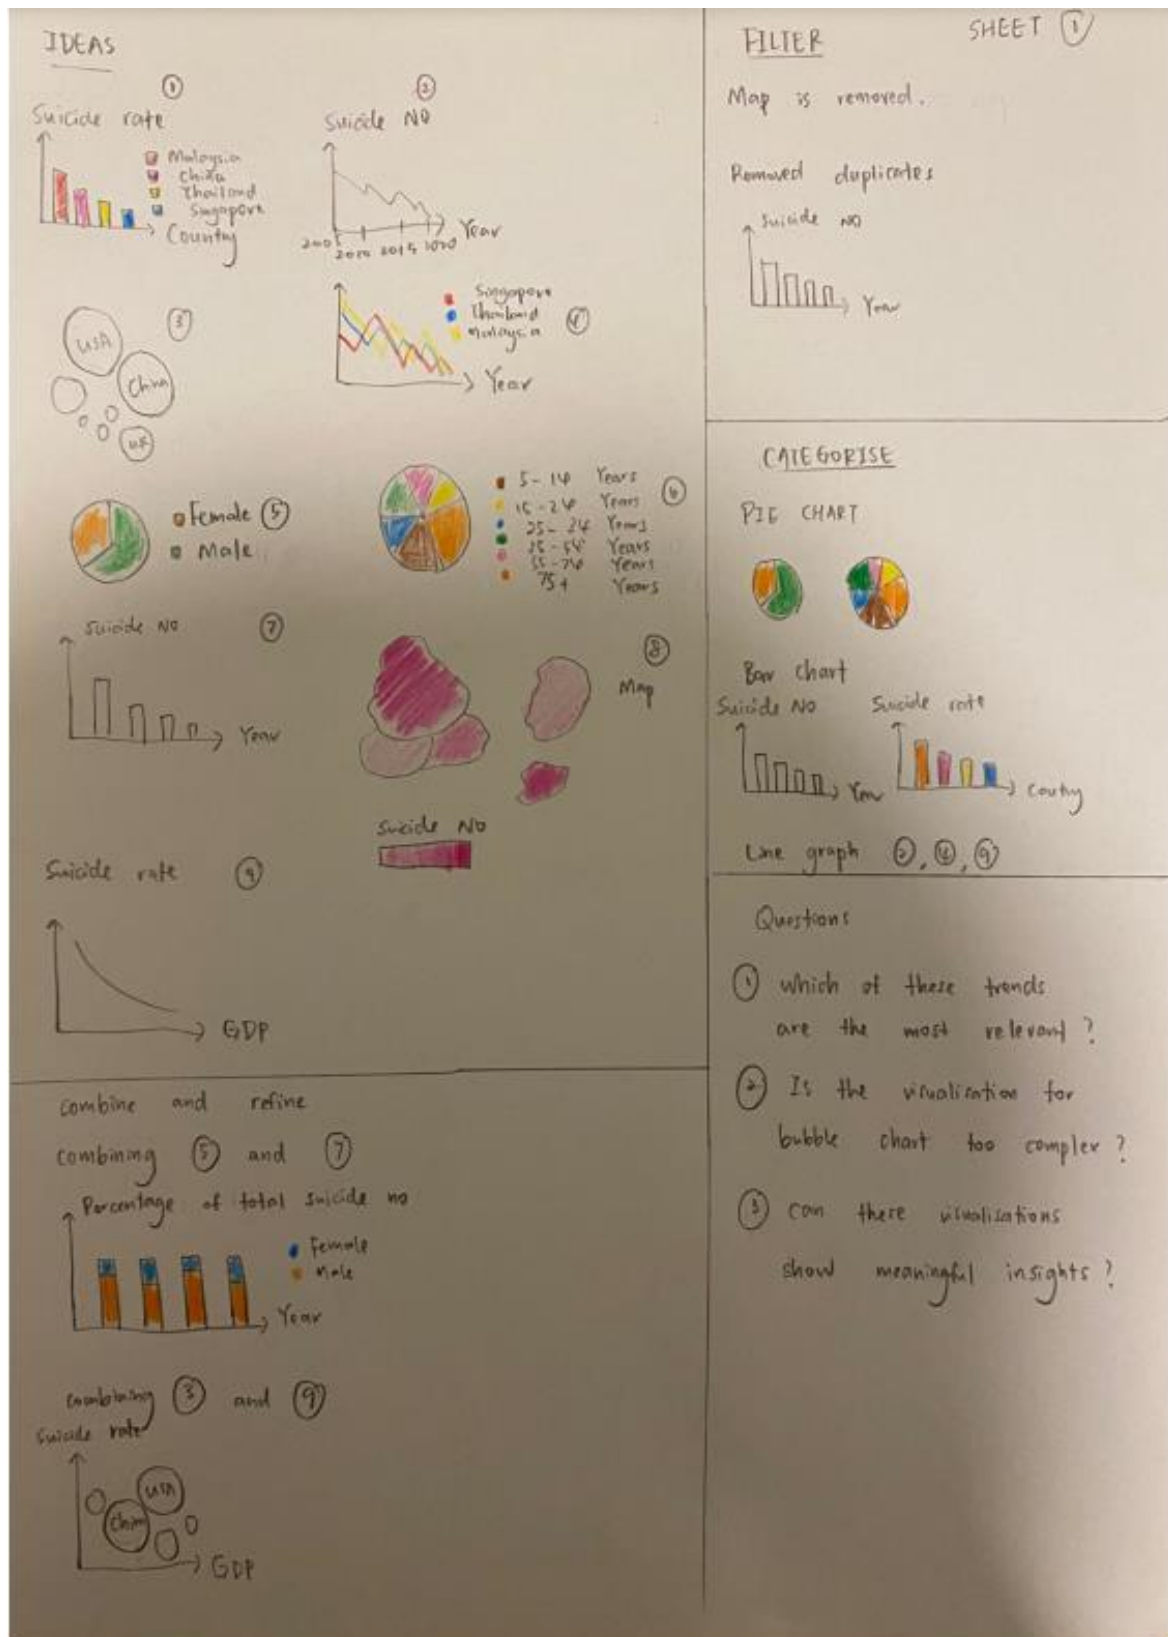 IDEAS
①
Suicide rate
Malaysia
China
Thailand
Singapore
Country
②
Suicide NO
2005
2010
2015
2020
Year
③
USA
China
UK
Singapore
Thailand
Malaysia
④
Year
Female ⑤
Male
5-14 Years
15-24 Years ⑥
25-34 Years
35-54 Years
55-74 Years
75+ Years
Suicide No ⑦
Year
⑧
Map
Suicide NO
Suicide rate ⑨
GDP
combine and refine
combining ⑤ and ⑦
Percentage of total suicide no
Female
Male
Year
combining ③ and ⑨
Suicide rate
USA
China
GDP
FILTER
SHEET ①
Map is removed.
Removed duplicates
Suicide NO
Year
CATEGORISE
PIE CHART
Bar chart
Suicide NO
Year
Suicide rate
Country
Line graph ②, ④, ⑨
Questions
① which of these trends
are the most relevant?
② Is the visualisation for
bubble chart too complex?
③ can these visualisations
show meaningful insights?